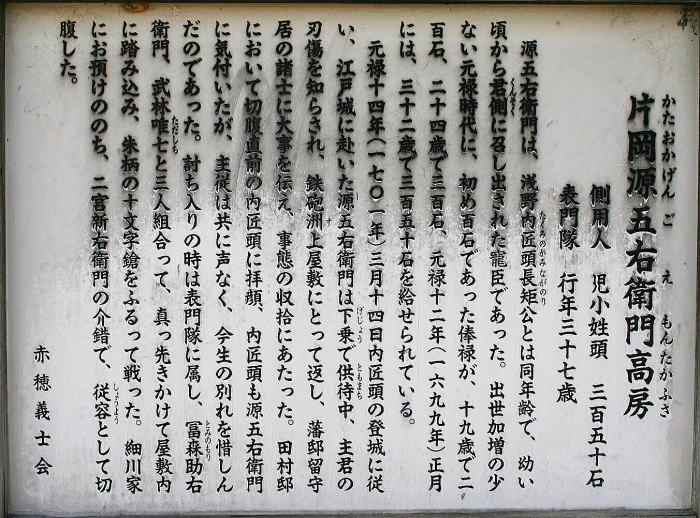 かたおかげんごえもんたかふさ
片岡源五右衛門高房
側用人 児小姓頭 三百五十石
表門隊 行年三十七歳
たくみのかみながのり
源五右衛門は、浅野内匠頭長矩公とは同年齢で、幼い
くんそく
頃から君側に召し出された寵臣であった。出世加増の少
ない元禄時代に、初め百石であった俸禄が、十九歳で二
百石、二十四歳で三百石、元禄十二年(一六九九年)正月
には、三十二歳で三百五十石を給せられている。
元禄十四年(一七〇一年)三月十四日内匠頭の登城に従
げじょう ともまち
い、江戸城に赴いた源五右衛門は下乗で供待中、主君の
す
刃傷を知らされ、鉄砲洲上屋敷にとって返し、藩邸留守
居の諸士に大事を伝え、事態の収拾にあたった。田村邸
において切腹直前の内匠頭に拝顔、内匠頭も源五右衛門
に気付いたが、主従は共に声なく、今生の別れを惜しん
とみのもり
だのであった。討ち入りの時は表門隊に属し、冨森助右
ただしち
衛門、武林唯七と三人組合って、真っ先きかけて屋敷内
に踏み込み、朱柄の十文字鎗をふるって戦った。細川家
しょうよう
にお預けののち、二宮新右衛門の介錯で、従容として切
腹した。
赤穂義士会